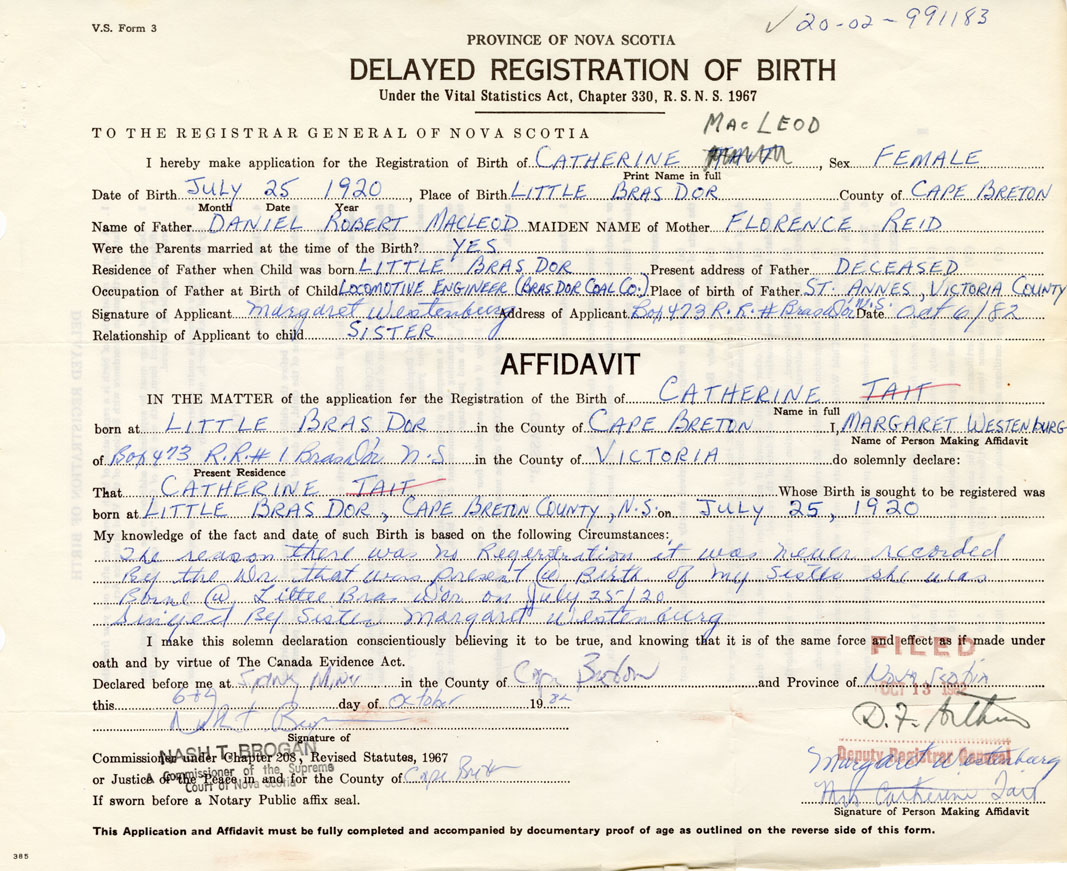 V.S. Form 3
✓ 20-02-991183
PROVINCE OF NOVA SCOTIA
DELAYED REGISTRATION OF BIRTH
Under the Vital Statistics Act, Chapter 330, R. S. N. S. 1967
TO THE REGISTRAR GENERAL OF NOVA SCOTIA
MACLEOD
I hereby make application for the Registration of Birth of CATHERINE , Sex FEMALE
Print Name in full
Date of Birth JULY 25 1920 , Place of Birth LITTLE BRAS DOR County of CAPE BRETON
Month Date Year
Name of Father DANIEL ROBERT MACLEOD MAIDEN NAME of Mother FLORENCE REID
Were the Parents married at the time of the Birth? YES
Residence of Father when Child was born LITTLE BRAS DOR Present address of Father DECEASED
Occupation of Father at Birth of Child LOCOMOTIVE ENGINEER (BRAS DOR COAL CO.) Place of birth of Father ST. ANNES, VICTORIA COUNTY
Signature of Applicant Margaret Westenburg Address of Applicant Box 473 R.R. #1 Brasd'or N.S. Date Oct 6/82
Relationship of Applicant to child SISTER
AFFIDAVIT
IN THE MATTER of the application for the Registration of the Birth of CATHERINE TAIT
Name in full
born at LITTLE BRAS DOR in the County of CAPE BRETON I, MARGARET WESTENBURG
Name of Person Making Affidavit
of Box 473 R.R.# 1 Brasd'or N.S in the County of VICTORIA do solemnly declare:
Present Residence
That CATHERINE TAIT Whose Birth is sought to be registered was
born at LITTLE BRAS DOR, CAPE BRETON COUNTY, N.S. on JULY 25, 1920
My knowledge of the fact and date of such Birth is based on the following Circumstances:
The reason there was no Regestration it was never recorded
By the Dr. that was present @ Birth of my Sister she was
Borne @ Little Bras D'or on July 25/20
Singed By Sister Margaret Westenburg
I make this solemn declaration conscientiously believing it to be true, and knowing that it is of the same force and effect as if made under
oath and by virtue of The Canada Evidence Act.
FILED
Declared before me at Sydney Mines in the County of Cape Breton and Province of Nova Scotia
OCT 13 1982
this 6th day of October 1982
D.F. Arthur
Signature of
Commissioner under Chapter 208, Revised Statutes, 1967
NASH T. BROGAN
A Commissioner of the Supreme
Court of Nova Scotia
Deputy Registrar General
Margaret Westenburg
or Justice of the Peace in and for the County of Cape Breton
Mrs Catherine Tait
If sworn before a Notary Public affix seal.
Signature of Person Making Affidavit
This Application and Affidavit must be fully completed and accompanied by documentary proof of age as outlined on the reverse side of this form.
385